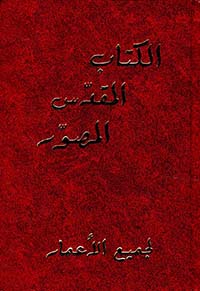 الكتاب
المقدّس
المصوّر
لجميع الأعمار